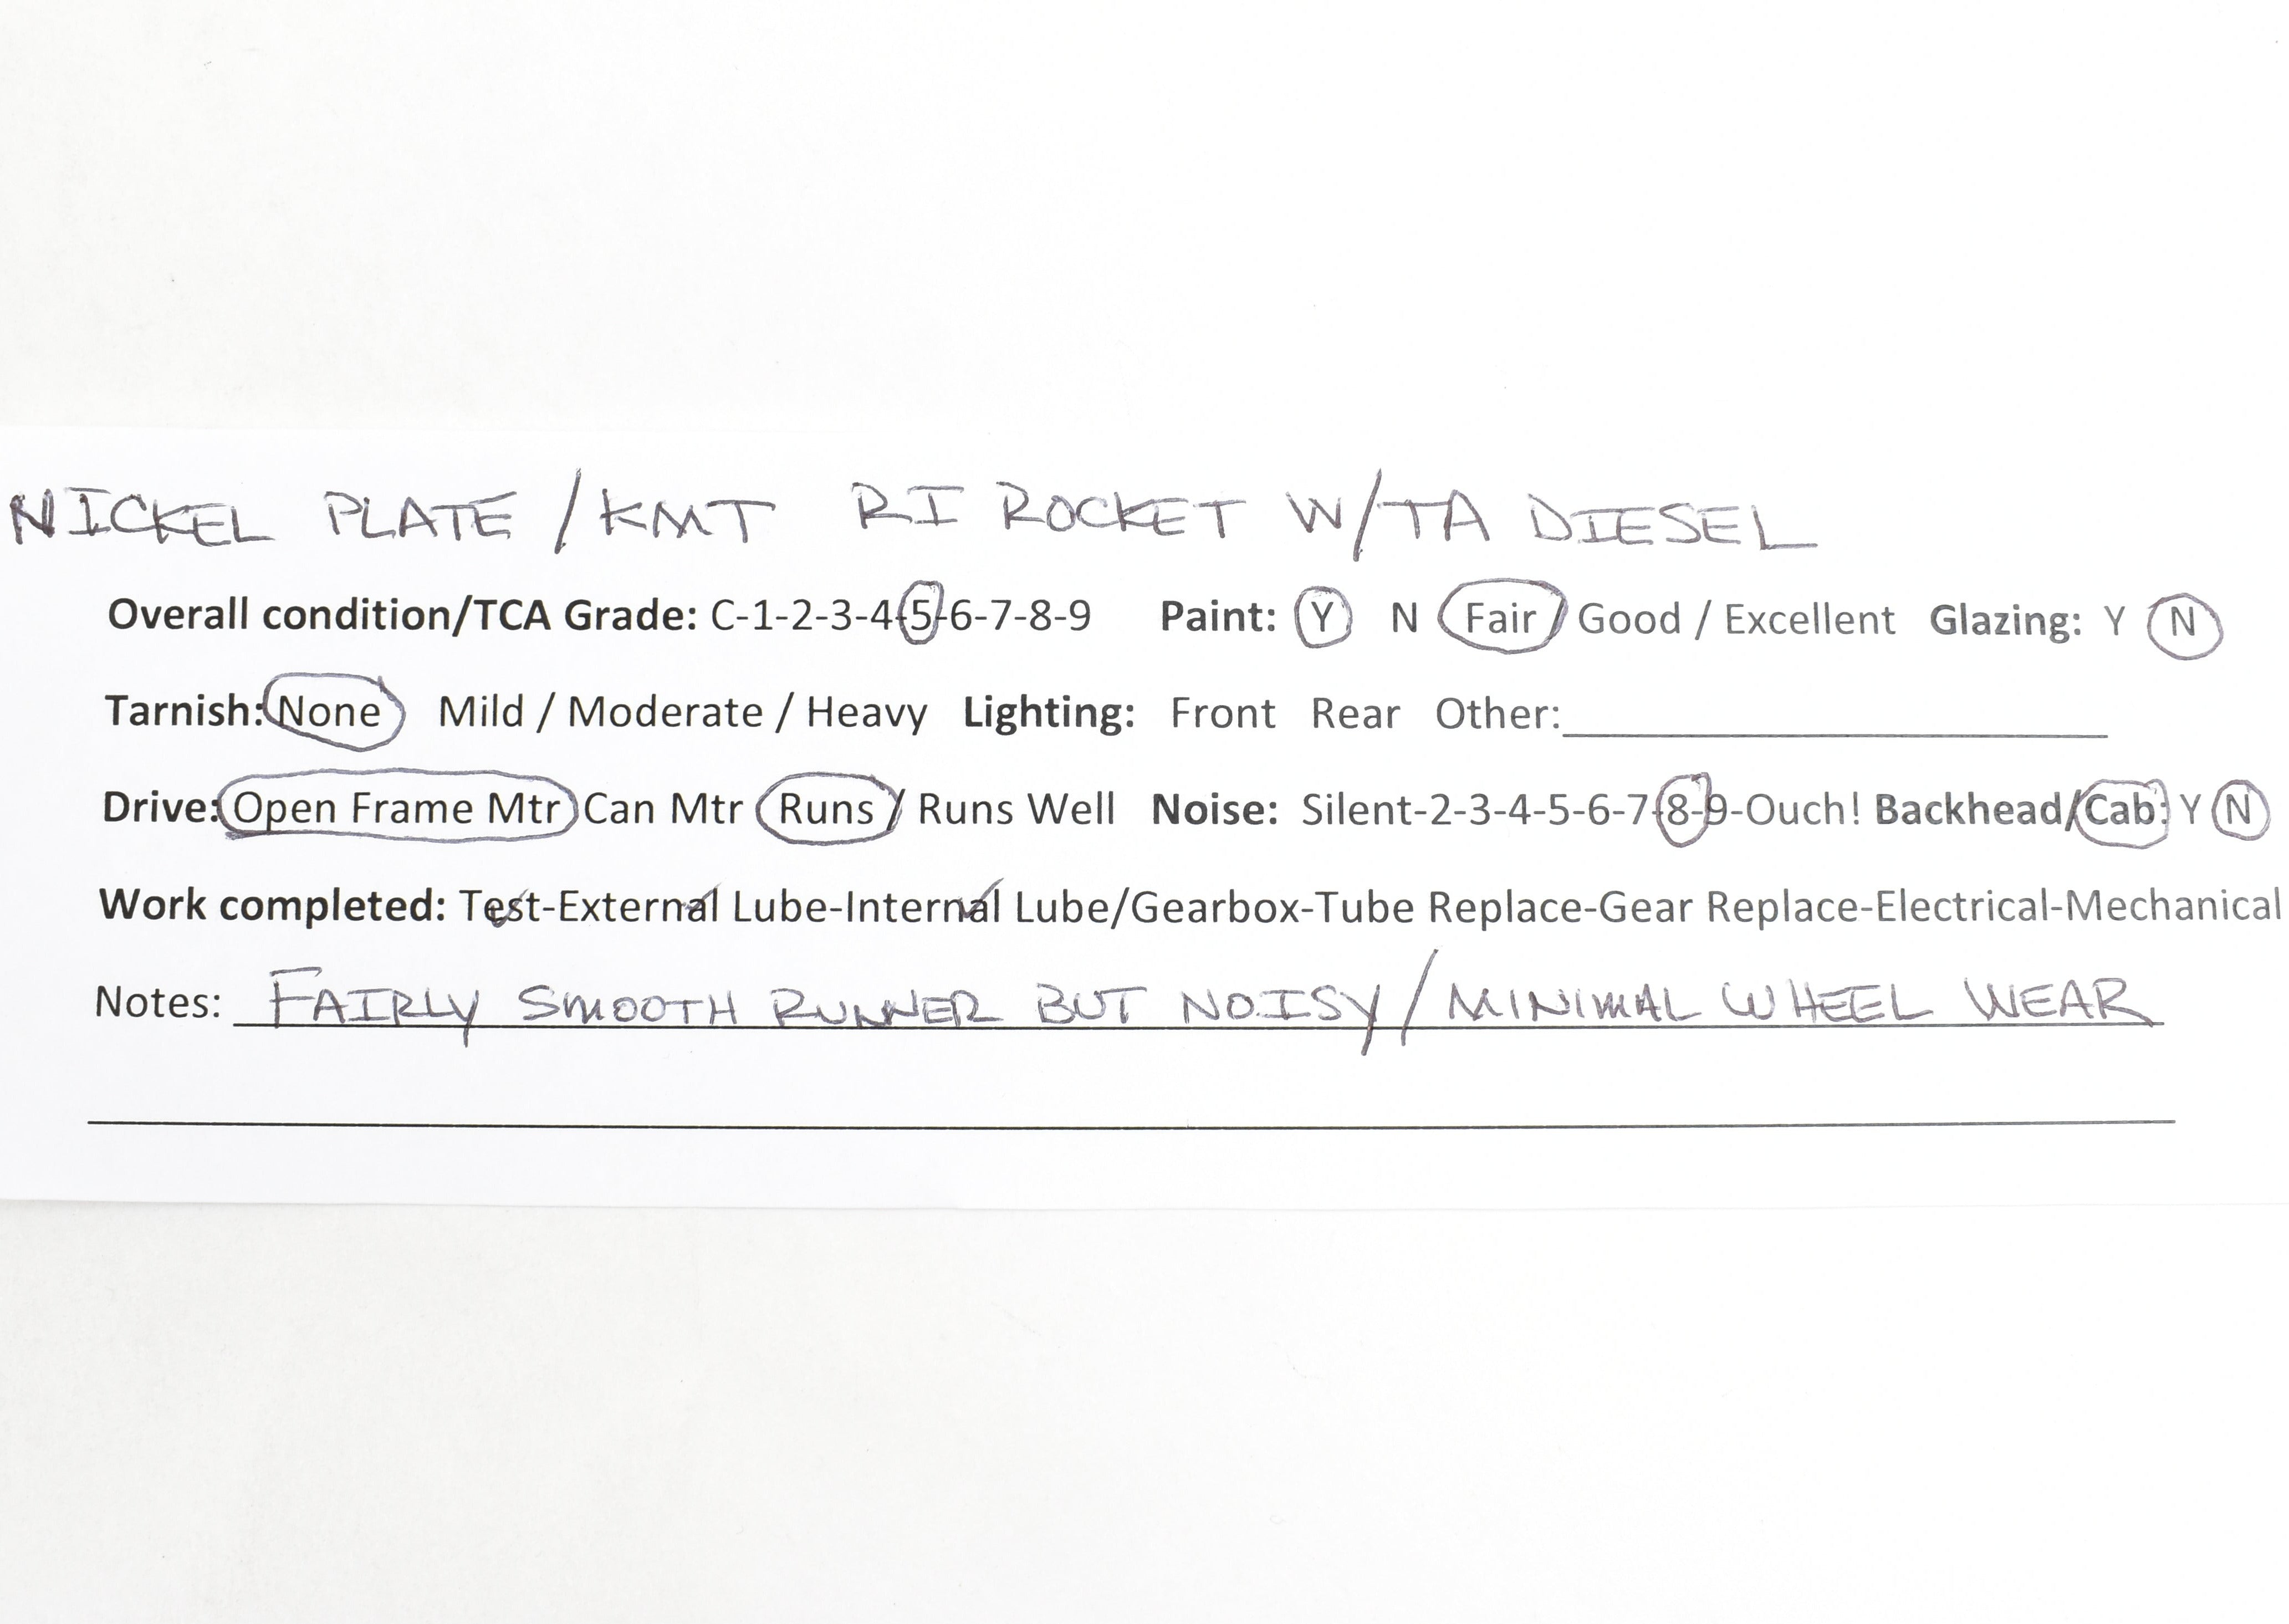 NICKEL PLATE / KMT RI ROCKET W/TA DIESEL
Overall condition/TCA Grade: C-1-2-3-4-5-6-7-8-9 Paint: Y N Fair / Good / Excellent Glazing: Y N
Tarnish: None Mild / Moderate / Heavy Lighting: Front Rear Other:
Drive: Open Frame Mtr Can Mtr Runs / Runs Well Noise: Silent-2-3-4-5-6-7-8-9-Ouch! Backhead/Cab: Y N
Work completed: Test-External Lube-Internal Lube/Gearbox-Tube Replace-Gear Replace-Electrical-Mechanical
Notes: FAIRLY SMOOTH RUNNER BUT NOISY / MINIMAL WHEEL WEAR